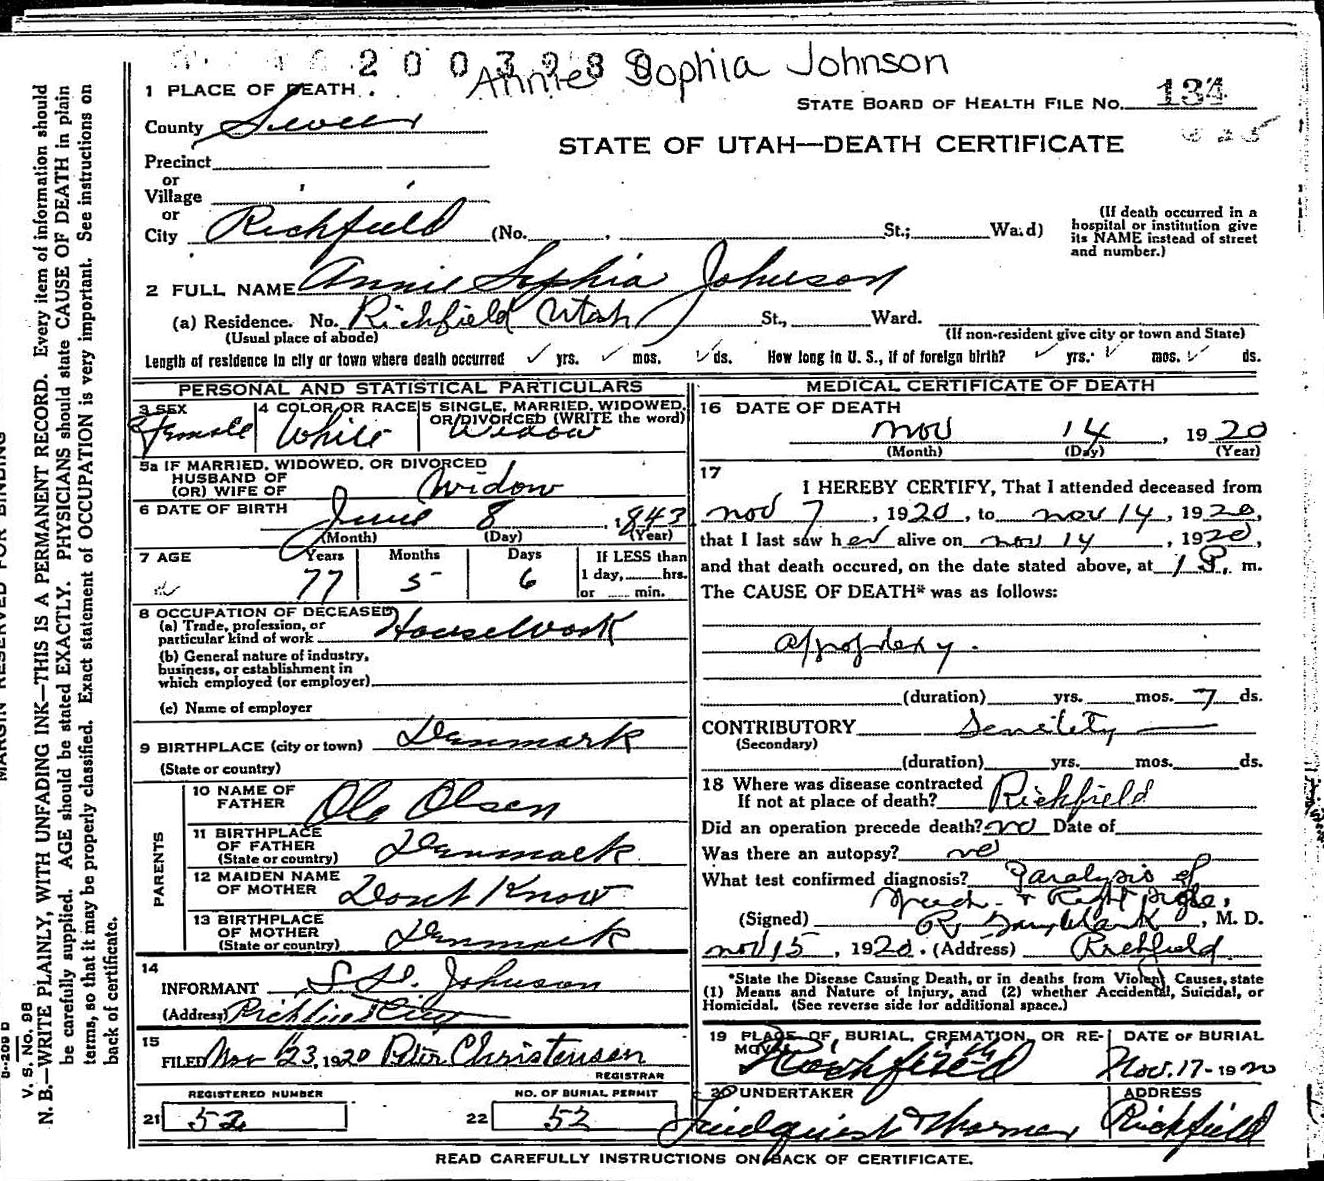 2 0 0 3 9 8 8
Annie Sophia Johnson
1 PLACE OF DEATH
STATE BOARD OF HEALTH FILE NO. 134
County Sevier
STATE OF UTAH—DEATH CERTIFICATE
Precinct
or
Village
or
City Richfield (No. , St.; Ward)
(If death occurred in a hospital or institution give its NAME instead of street and number.)
2 FULL NAME Annie Sophia Johnson
(a) Residence. No. Richfield Utah St., Ward.
(Usual place of abode) (If non-resident give city or town and State)
Length of residence in city or town where death occurred ✓ yrs. ✓ mos. ✓ ds. How long in U. S., if of foreign birth? ✓ yrs. ✓ mos. ✓ ds.
PERSONAL AND STATISTICAL PARTICULARS
3 SEX Female
4 COLOR OR RACE White
5 SINGLE, MARRIED, WIDOWED, OR DIVORCED (WRITE the word) Widow
5a IF MARRIED, WIDOWED, OR DIVORCED
HUSBAND OF
(OR) WIFE OF Widow
6 DATE OF BIRTH June 8, 1843
(Month) (Day) (Year)
7 AGE Years Months Days If LESS than
77 5 6 1 day, hrs.
or min.
8 OCCUPATION OF DECEASED
(a) Trade, profession, or
particular kind of work Housework
(b) General nature of industry,
business, or establishment in
which employed (or employer)
(c) Name of employer
9 BIRTHPLACE (city or town) Denmark
(State or country)
PARENTS
10 NAME OF
FATHER Ole Olsen
11 BIRTHPLACE
OF FATHER
(State or country) Denmark
12 MAIDEN NAME
OF MOTHER Dont Know
13 BIRTHPLACE
OF MOTHER
(State or country) Denmark
14
INFORMANT Johnson
(Address) Richfield City
15
FILED Nov 23, 1920 Peter Christensen
REGISTRAR
REGISTERED NUMBER
21 52
NO. OF BURIAL PERMIT
22 52
MEDICAL CERTIFICATE OF DEATH
16 DATE OF DEATH
Nov 14, 1920
(Month) (Day) (Year)
17
I HEREBY CERTIFY, That I attended deceased from
Nov 7, 1920, to Nov 14, 1920,
that I last saw her alive on Nov 14, 1920,
and that death occured, on the date stated above, at 1 P. m.
The CAUSE OF DEATH* was as follows:
Apoplexy.
(duration) yrs. mos. 7 ds.
CONTRIBUTORY Senility
(Secondary)
(duration) yrs. mos. ds.
18 Where was disease contracted
If not at place of death? Richfield
Did an operation precede death? no Date of
Was there an autopsy? no
What test confirmed diagnosis? Paralysis of
Speech & Right side,
(Signed) , M. D.
Nov 15, 1920. (Address) Richfield
*State the Disease Causing Death, or in deaths from Violent Causes, state
(1) Means and Nature of Injury, and (2) whether Accidental, Suicidal, or
Homicidal. (See reverse side for additional space.)
19 PLACE OF, BURIAL, CREMATION, OR RE-
MOVAL Richfield
DATE OF BURIAL
Nov. 17-1920
20 UNDERTAKER
ADDRESS
Richfield
READ CAREFULLY INSTRUCTIONS ON BACK OF CERTIFICATE.
MARGIN RESERVED FOR BINDING
V. S. NO. 98
N. B.—WRITE PLAINLY, WITH UNFADING INK—THIS IS A PERMANENT RECORD. Every item of information should
be carefully supplied. AGE should be stated EXACTLY. PHYSICIANS should state CAUSE OF DEATH in plain
terms, so that it may be properly classified. Exact statement of OCCUPATION is very important. See instructions on
back of certificate.